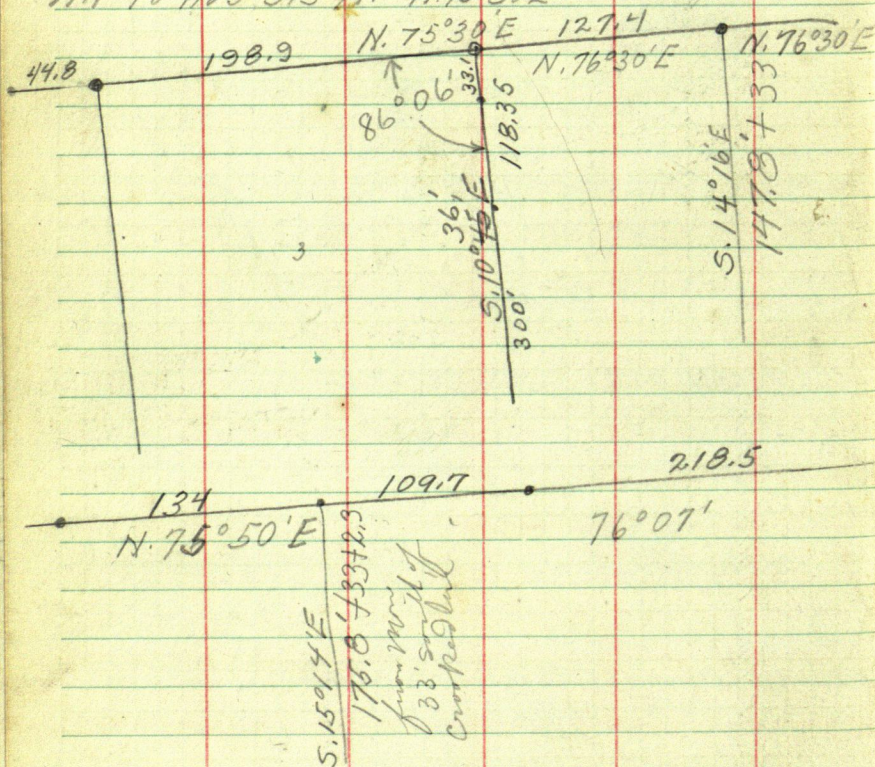 44.8
198.9
N. 75°30' E
127.4
N. 76°30' E
N. 76°30' E
86° 06'
33.1
118.35
36'
S. 10°45' E
300'
S. 14°16' E
147.8' + 33
3
134
109.7
218.5
N. 75° 50' E
76° 07'
S. 15°14' E
175.8' + 33 + 2.3
from
33'
crooked